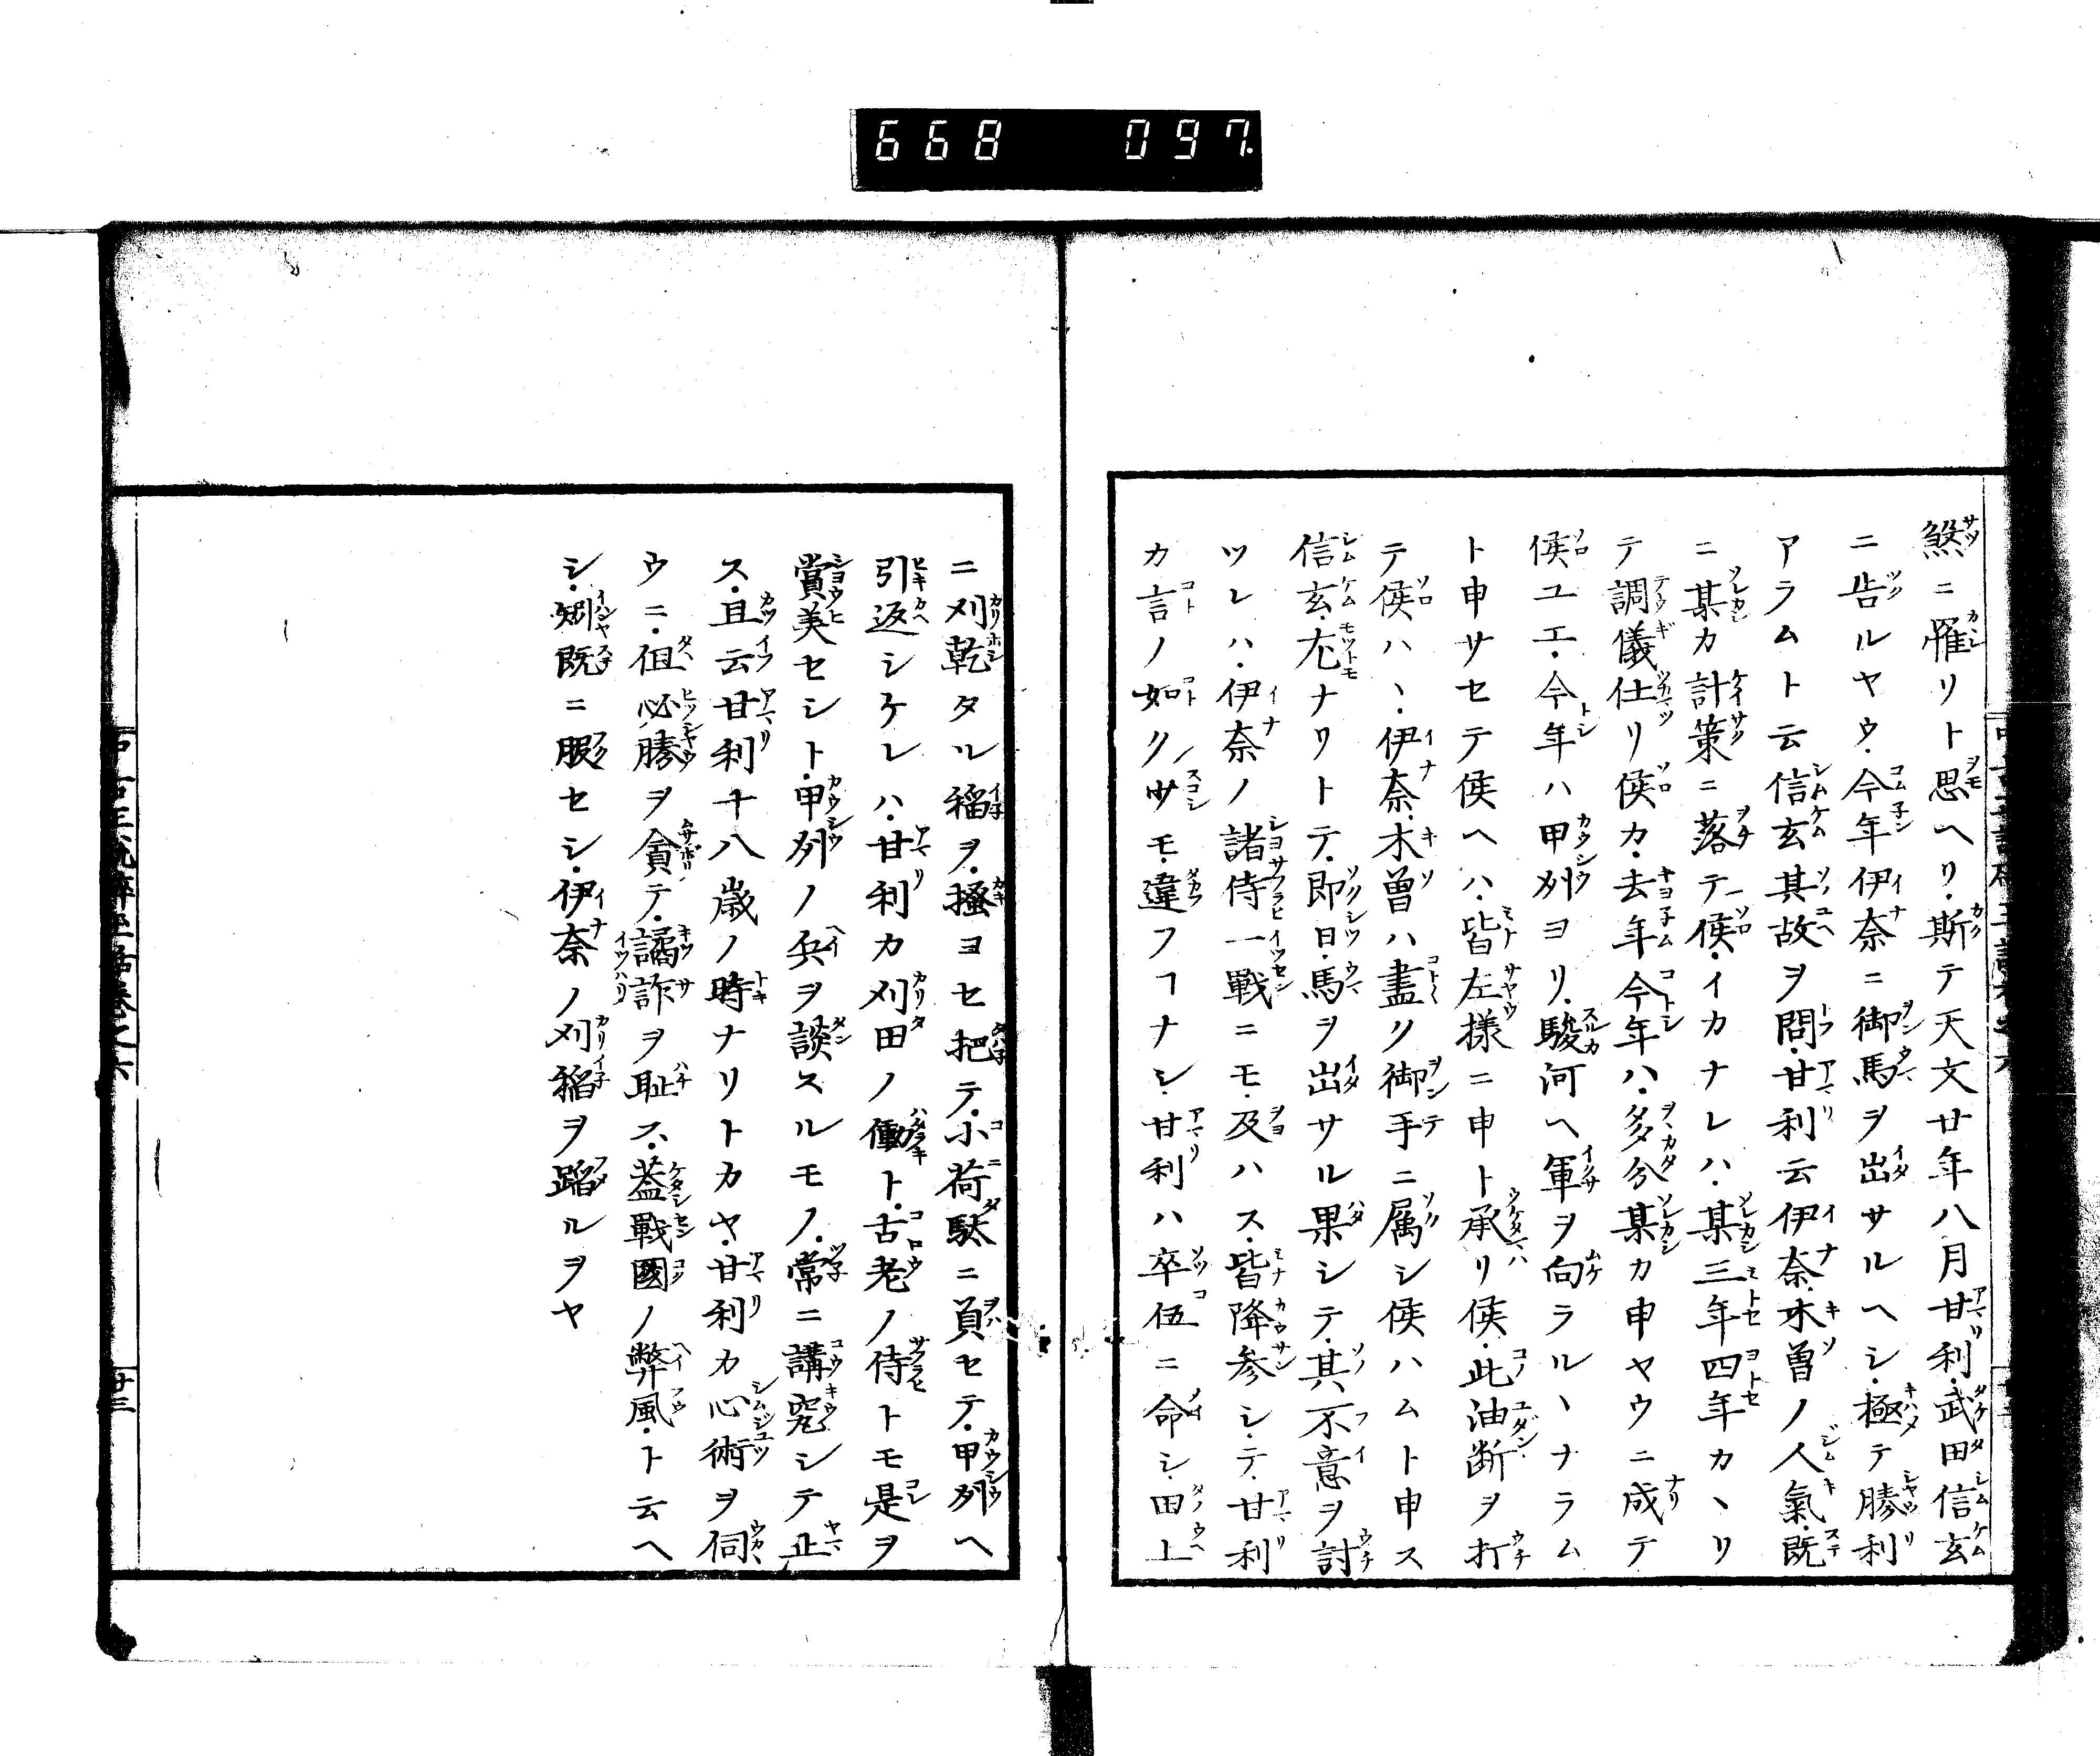 668 097
煞ニ罹リト思ヘリ斯テ天文廿年八月甘利武田信玄
ニ告ルヤウ今年伊奈ニ御馬ヲ出サルヘシ極テ勝利
アラムト云信玄其故ヲ問甘利云伊奈木曽ノ人氣既
ニ某カ計策ニ落テ候イカナレハ某三年四年カヽリ
テ調儀仕リ候カ去年今年ハ多分某カ申ヤウニ成テ
候ユエ今年ハ甲州ヨリ駿河ヘ軍ヲ向ラルヽナラム
ト申サセテ候ヘハ皆左様ニ申ト承リ候此油断ヲ打
テ候ハヽ伊奈木曽ハ盡ク御手ニ属シ候ハムト申ス
信玄尤ナリトテ即日馬ヲ出サル果シテ其不意ヲ討
ツレハ伊奈ノ諸侍一戰ニモ及ハス皆降参シテ甘利
カ言ノ如ク少モ違フヿナシ甘利ハ卒伍ニ命シ田上
ニ刈乾タル稲ヲ搔ヨセ把テ小荷駄ニ負セテ甲州ヘ
引返シケレハ甘利カ刈田ノ働ト古老ノ侍トモ是ヲ
賞美セシト甲州ノ兵ヲ談スルモノ常ニ講究シテ止
ス且云甘利十八歳ノ時ナリトカヤ甘利カ心術ヲ伺
ウニ徂必勝ヲ貪テ譎詐ヲ耻ス蓋戰國ノ弊風ト云ヘ
シ矧既ニ服セシ伊奈ノ刈稲ヲ蹈ルヲヤ
廿三